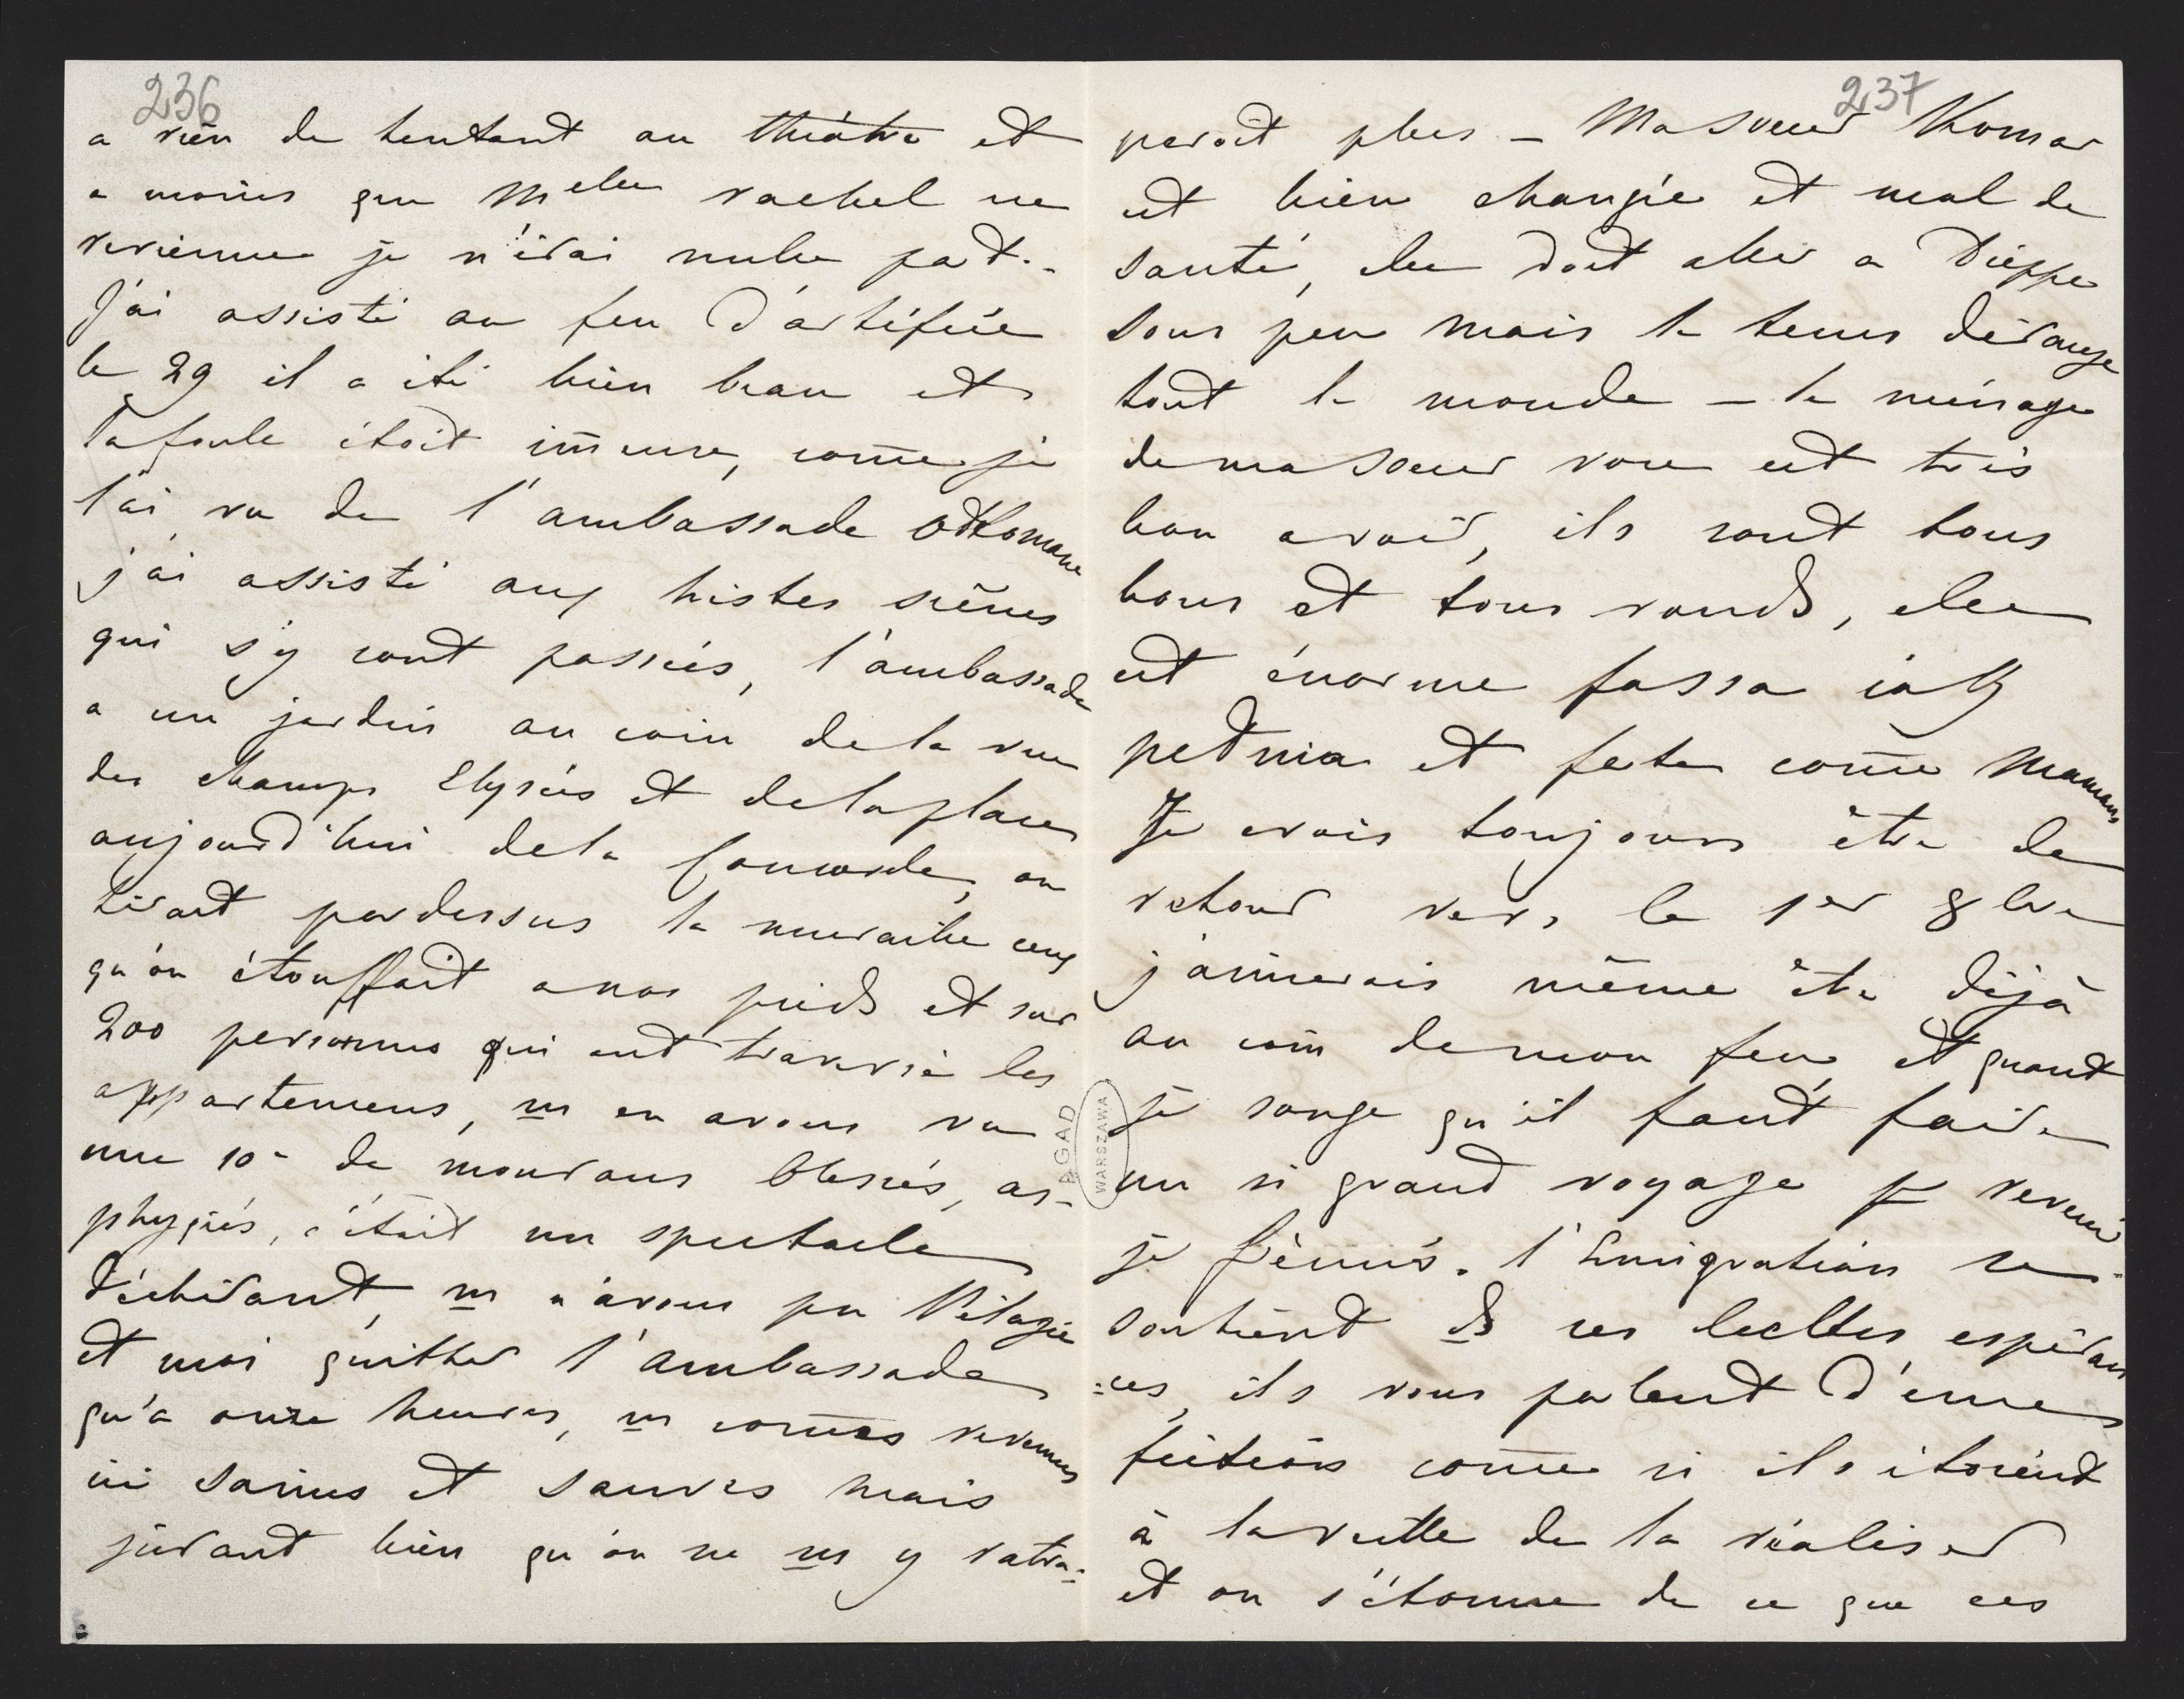 236
a rien de tentant au théatre et
a moins que Melle rachel ne
revienne je n'irai nulle part.-
J'ai assisté au feu d'artifice
le 29 il a été bien beau et
la foule étoit im̄ense, com̄e je
l'ai vu de l'ambassade Ottomane
j'ai assisté aux tristes scènes
qui s'y sont passées, l'ambassade
a un jardin au coin de la rue
des champs Elysées et de la place
aujourd'hui de la Concorde, on
tirait pardessus la muraille ceux
qu'on étouffait a nos pieds et sur
200 personnes qui ont traversé les
appartemens, ns en avons vu
une 10e de mourans blessés, as-
phyxiés, c'était un spectacle
déchirant, ns n'avons pu Pélagie
et moi quitter l'ambassade
qu'a onze heures, ns som̄es revenues
ici saines et sauves mais
jurant bien qu'on ne ns y ratra-
237
peroit plus - Ma soeur Komar
est bien changée et mal de
santé, elle doit aller a Dieppe
sous peu mais le tems dérange
tout le monde - le ménage
de ma soeur rose est très
bon a voir, ils sont tous
bons et tous ronds, elle
est énorme fassa
et faite com̄e Maman
Je crois toujours être de
retour vers le 1er 8bre
j'aimerais même être déjà
au coin de mon feu, et quand
je songe qu'il faut faire
un si grand voyage pr revenir
je frémis. l'Emigration se
soutient ds ses belles espéran
=ces, ils vous parlent d'une
fiction com̄e si ils étoient
à la veille de la réaliser
et on s'étonne de ce que ces
AGAD
WARSZAWA